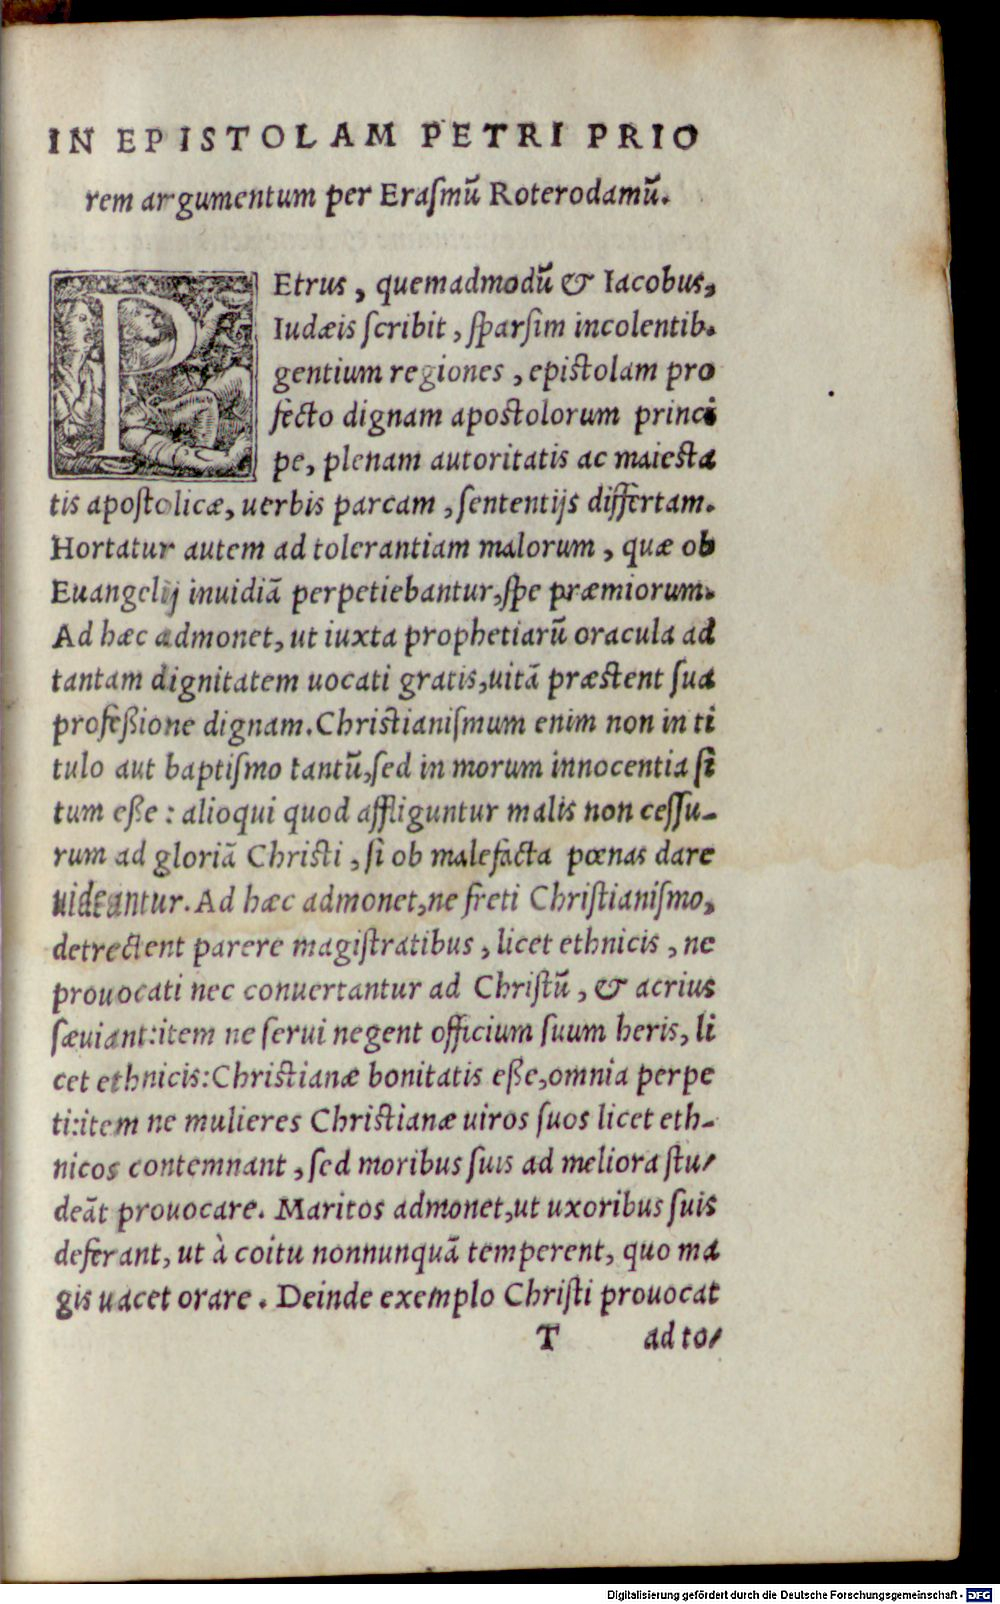 IN EPISTOLAM PETRI PRIO
rem argumentum per Eraſmũ Roterodamũ.
PEtrus, quemadmodũ & Iacobus,
Iudæis ſcribit, ſparſim incolentib.
gentium regiones, epiſtolam pro
fecto dignam apoſtolorum princi
pe, plenam autoritatis ac maieſta
tis apoſtolicæ, uerbis parcam, ſententijs differtam.
Hortatur autem ad tolerantiam malorum, quæ ob
Euangelij inuidiã perpetiebantur, ſpe præmiorum.
Ad hæc admonet, ut iuxta prophetiarũ oracula ad
tantam dignitatem uocati gratis, uitã præſtent ſua
profeßione dignam. Chriſtianiſmum enim non in ti
tulo aut baptiſmo tantũ, ſed in morum innocentia ſi
tum eße: alioqui quod affliguntur malis non ceſſu-
rum ad gloriã Chriſti, ſi ob malefacta pœnas dare
uideantur. Ad hæc admonet, ne freti Chriſtianiſmo,
detrectent parere magiſtratibus, licet ethnicis, ne
prouocati nec conuertantur ad Chriſtũ, & acrius
ſæuiant: item ne ſerui negent officium ſuum heris, li
cet ethnicis: Chriſtianæ bonitatis eße, omnia perpe
ti: item ne mulieres Chriſtianæ uiros ſuos licet eth-
nicos contemnant, ſed moribus ſuis ad meliora ſtu-
deãt prouocare. Maritos admonet, ut uxoribus ſuis
deferant, ut à coitu nonnunquã temperent, quo ma
gis uacet orare. Deinde exemplo Chriſti prouocat
T ad to-
Digitalisierung gefördert durch die Deutsche Forschungsgemeinschaft - DFG